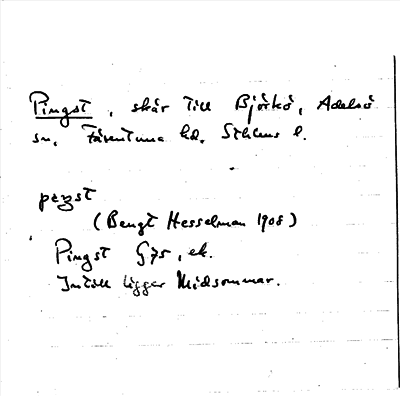 Pingst, skär till Björkö, Adelsö
sn, Färentuna hd, Sthlms l.
peŋst
(Bengt Hesselman 1908)
Pingst G75, ek.
Intill ligger Midsommar.